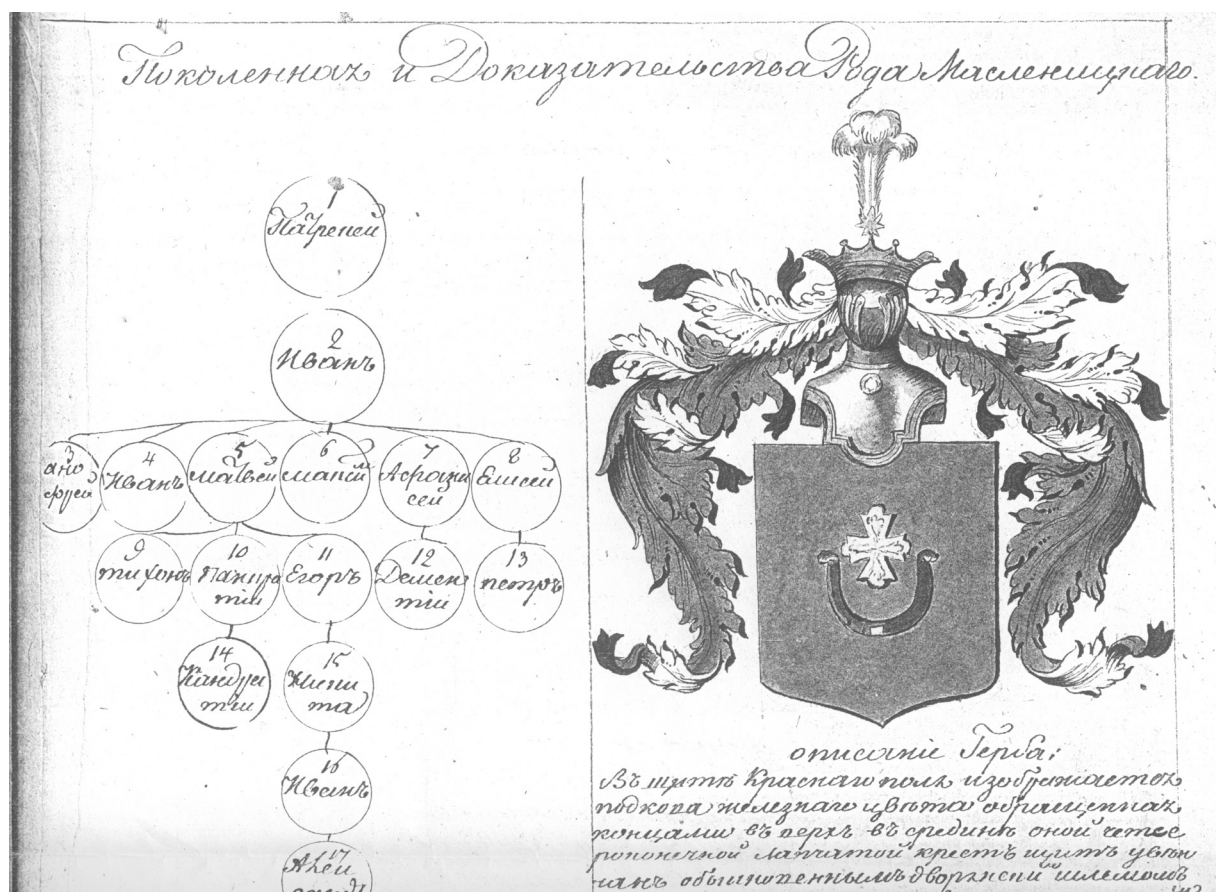 Поколеннаѧ и Доказательства Рода Масленицкаго.
1
2
Иванъ
3
ано
фреи
4
Иванъ
5
Матвей
6
7
8
Елисей
9
тихонъ
10
11
Егоръ
12
Демен
тіи
13
петръ
14
15
Жики
та
16
Иванъ
17
описаніе Герба:
Въ щитѣ Краснаго полѧ изображаетсѧ
подкова железнаго цвѣта обращеннаѧ
концами въ верхъ въ срединѣ оной четве
роконечной лапчатой крестъ щитъ увѣн
чанъ обыкновеннымъ дворѧнски шлемомъ